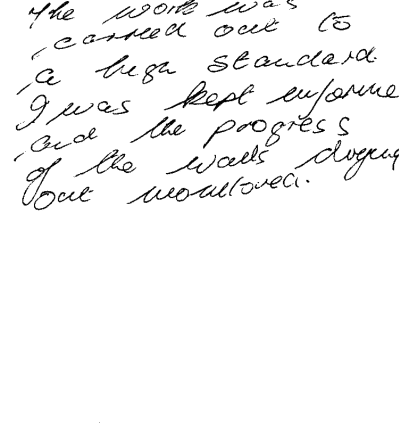 The work was
carried out to
a high standard.
I was kept informe
and the progress
of the walls drying
out monitored.